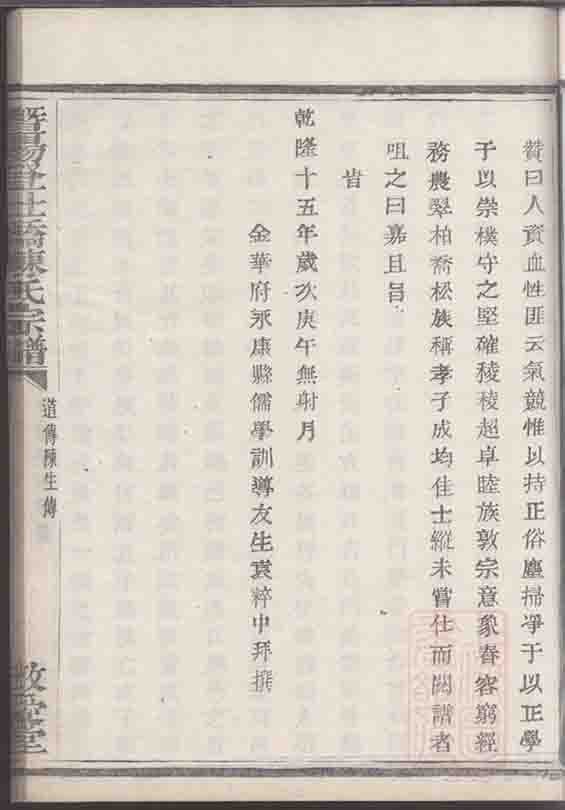 贊曰人資血性匪云氣競惟以持正俗塵掃淨于以正學
于以崇樸守之堅確稜稜超卓睦族敦宗意象春容窮經
務農翠柏喬松族稱孝子成均佳士縱未嘗仕而閱譜者
咀之曰嘉且旨
旹
乾隆十五年歲次庚午無射月
金華府永康縣儒學訓導友生袁粹中拜撰
暨陽上士橋陳氏宗譜
道傳陳生傳
敦
堂